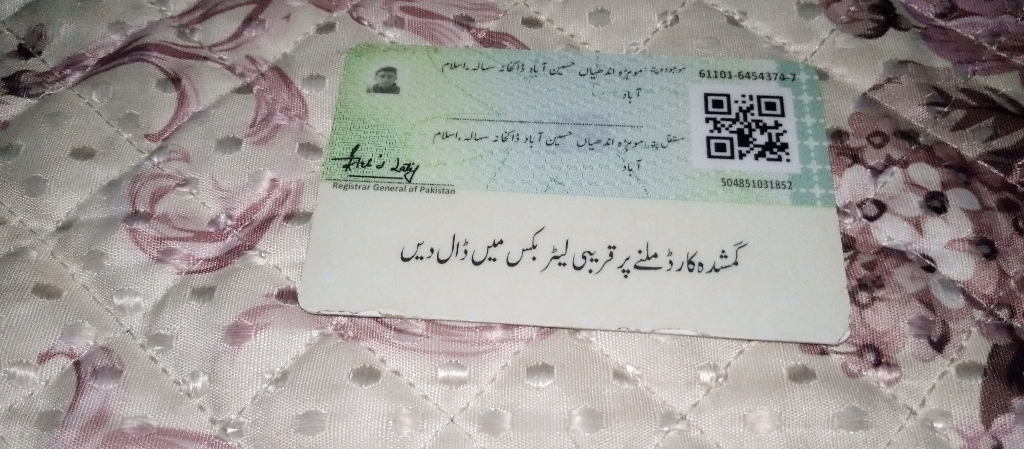 61101-6454374-7
موجودہ پتہ: موہڑہ اندھیاں حسین آباد ڈاکخانہ سہالہ،اسلام
آباد
مستقل پتہ: موہڑہ اندھیاں حسین آباد ڈاکخانہ سہالہ،اسلام
آباد
504851031852
Registrar General of Pakistan
گمشدہ کارڈ ملنے پر قریبی لیٹر بکس میں ڈال دیں